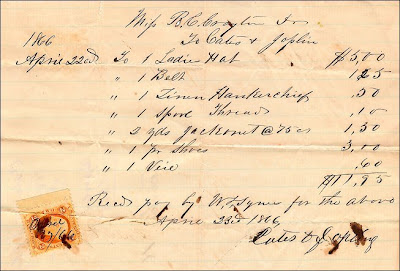 Miss B. C. Crayton Dr
To Cates & Joplin
1866
April 22nd To 1 Ladies Hat $5,00
" 1 Belt 1 25
" 1 Linen Hankerchief ,50
" 1 Spool Threads ,10
" 2 yds Jackonet @ 75 cs 1,50
" 1 pr Shoes 3,00
" 1 Veil ,60
$11,95
Recd pay by W. Tyner for the above
April 23rd 1866
Cates & Joplin